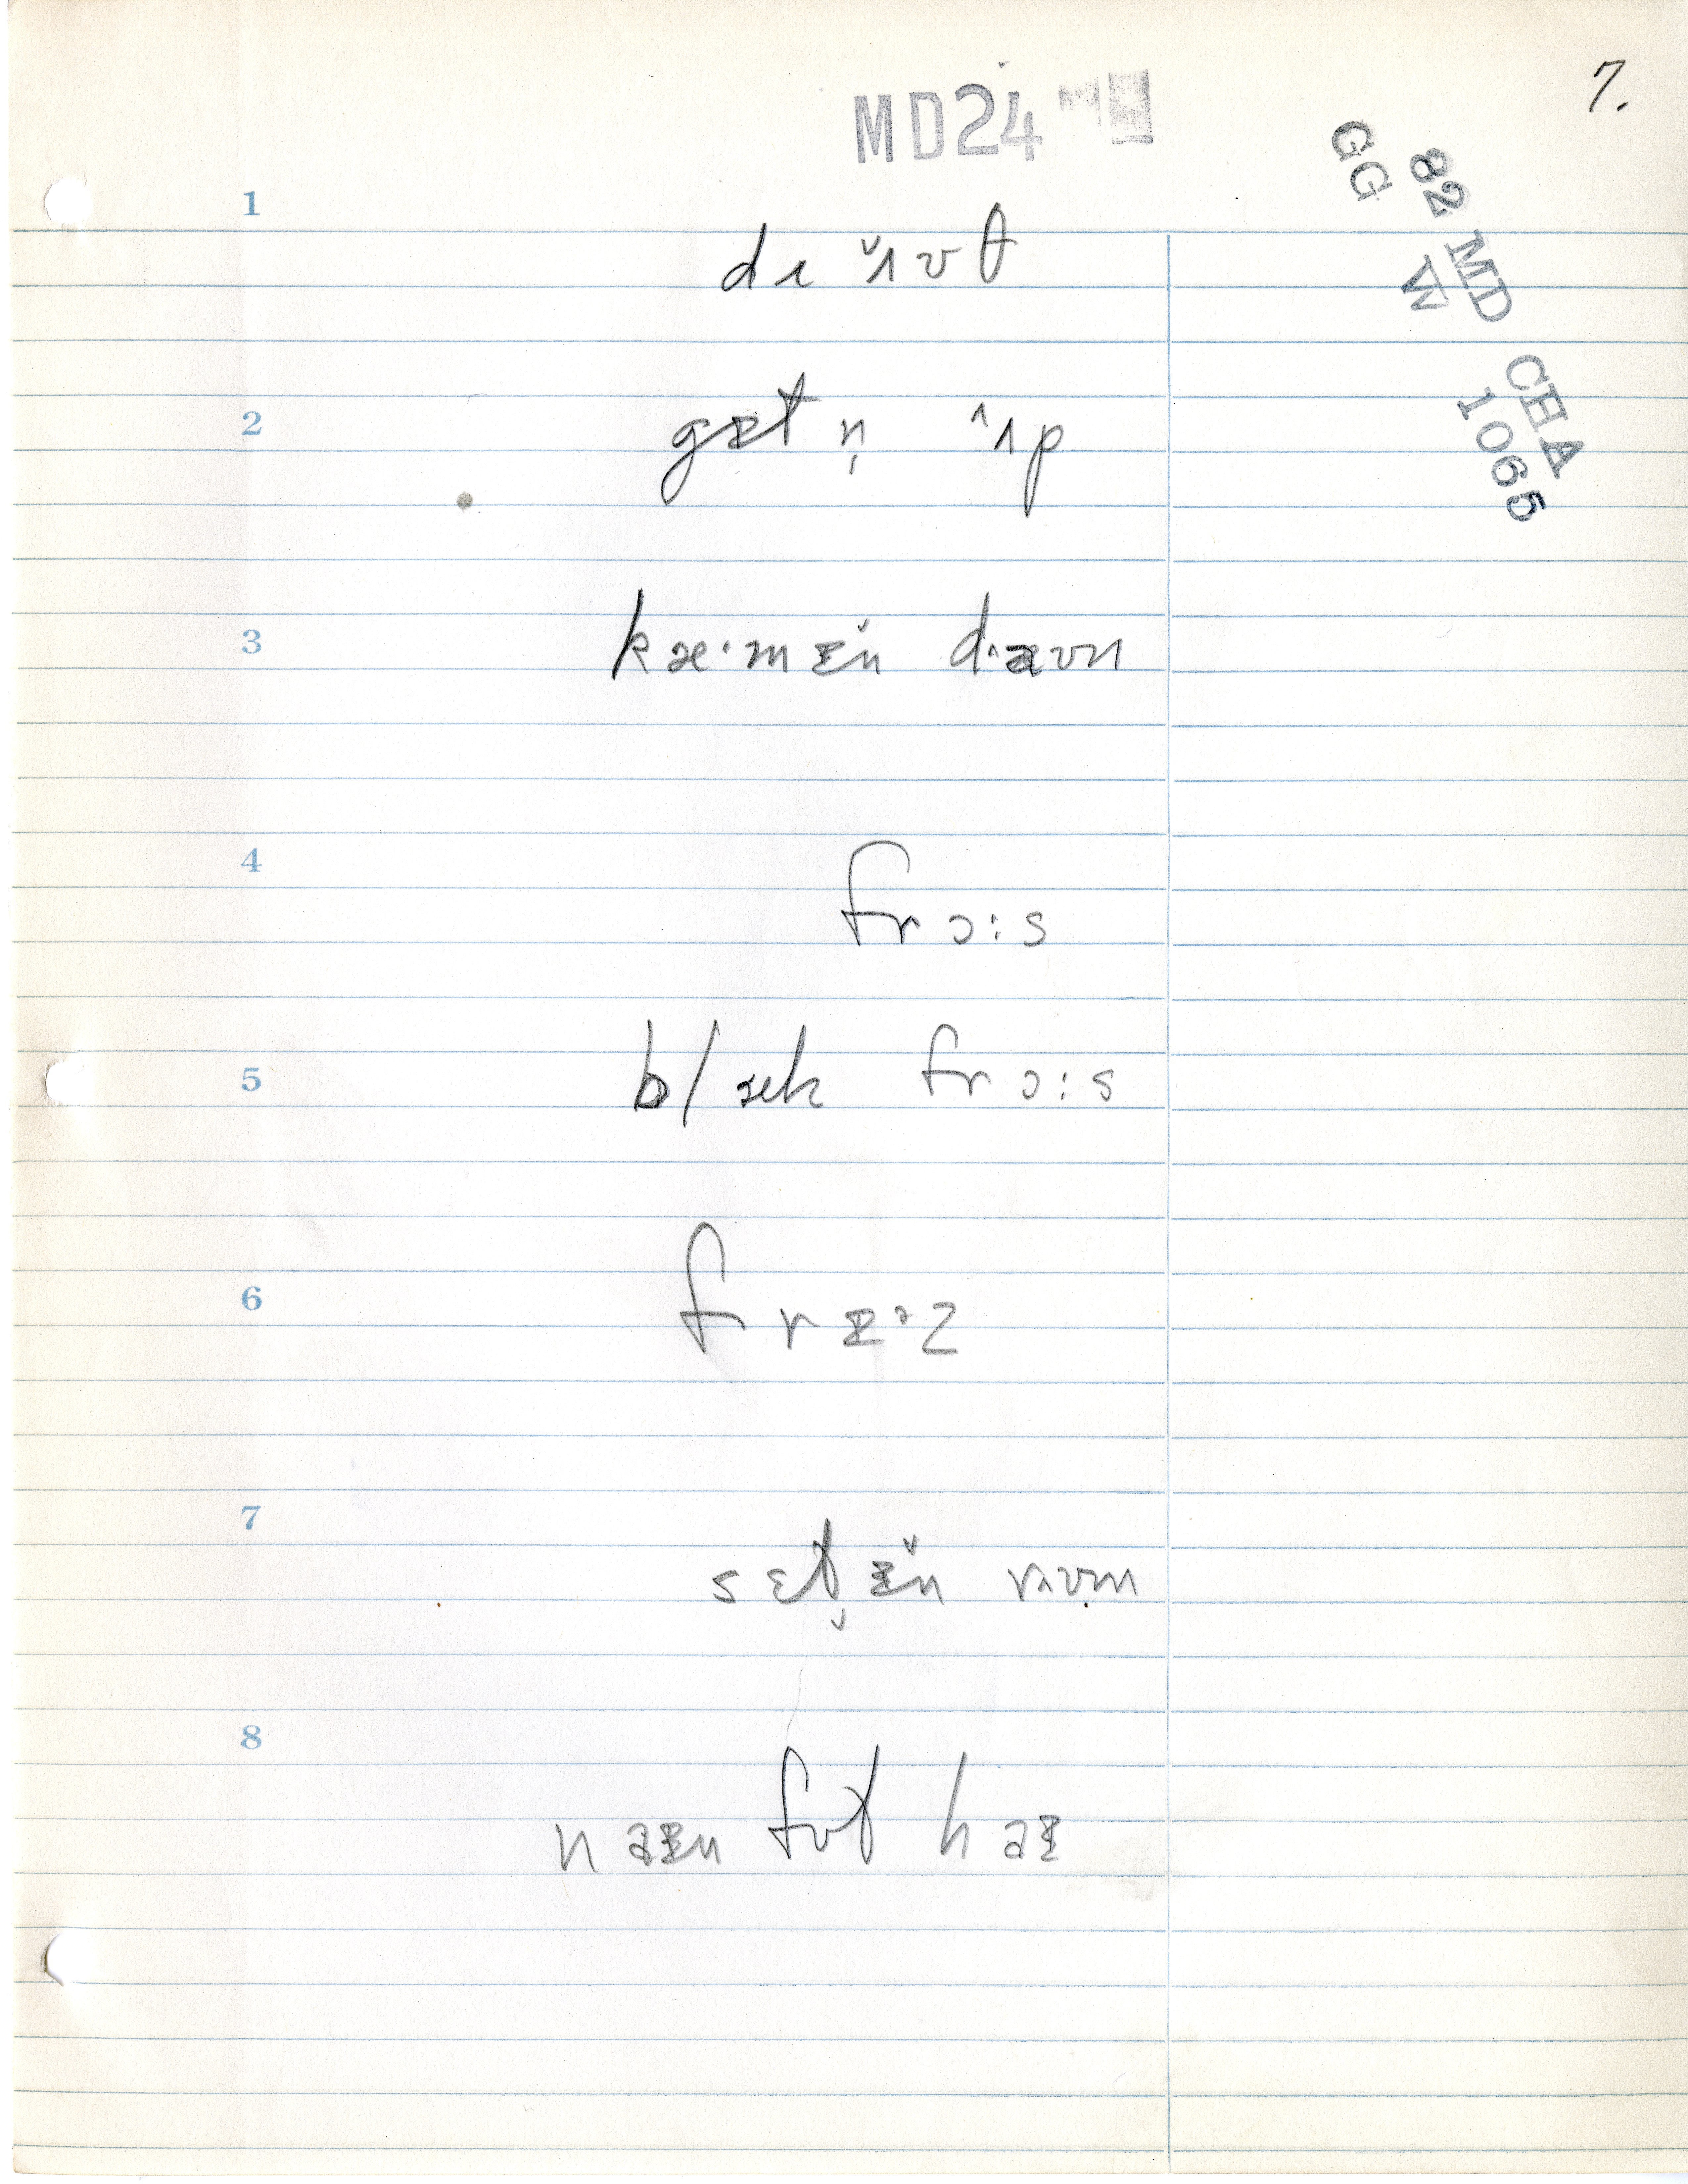 7.
MD24
82 MD CHA
GG W 1065
1
dɹ ʌ̆ʊθ
2
gɪt n̩ ʌ̂p
3
kæ·mɪn̆ d·aʊn
4
frɔ:s
5
blæk frɔ:s
6
frɪ·z
7
sɛt̬ɪn̆ r·ʊm
8
naɪn fʊt haɪ